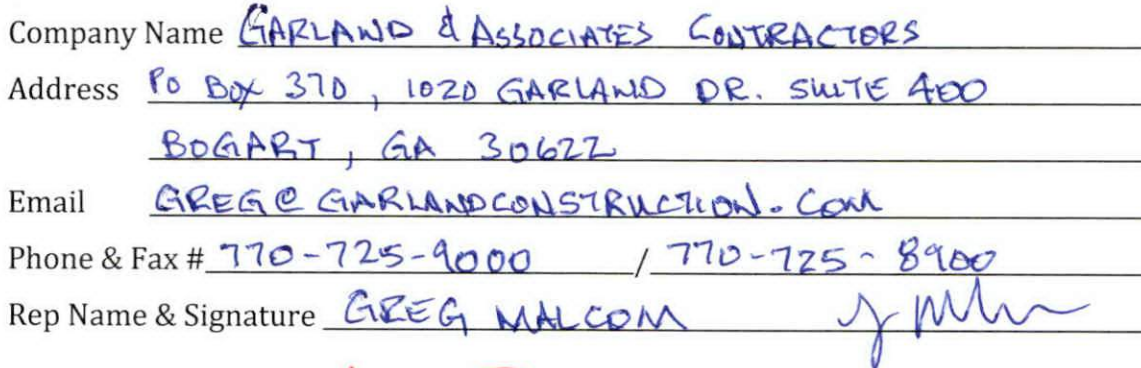 Company Name GARLAND & ASSOCIATES CONTRACTORS
Address PO BOX 370, 1020 GARLAND DR. SUITE 400
BOGART, GA 30622
Email GREG@GARLANDCONSTRUCTION.COM
Phone & Fax # 770-725-9000 / 770-725-8900
Rep Name & Signature GREG MALCOM